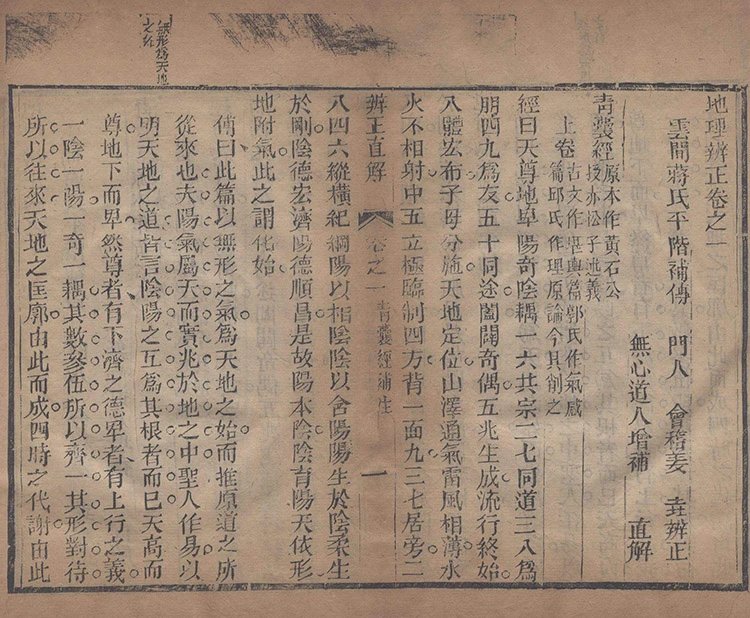 無形為天地
之始
地理辨正卷之一
雲間蔣氏平階補傳 門人 會稽姜 垚辨正
無心道人增補 直解
青囊經 原本作黃石公
授赤松子述義
上卷 古文作堪輿篇郭氏作氣感
篇邱氏作理原論今具削之
經曰天尊地卑陽奇陰耦一六共宗二七同道三八為
朋四九為友五十同途闔闢奇偶五兆生成流行終始
八體宏布子母分施天地定位山澤通氣雷風相薄水
火不相射中五立極臨制四方背一面九三七居旁二
辨正直解 卷之一 青囊經 一
八四六縱橫紀綱陽以相陰陰以含陽陽生於陰柔生
於剛陰德宏濟陽德順昌是故陽本陰陰育陽天依形
地附氣此之謂化始
傳曰此篇以無形之氣為天地之始而推原道之所
從來也夫陽氣屬天而實兆於地之中聖人作易以
明天地之道皆言陰陽之互為其根者而已天高而
尊地下而卑然尊者有下濟之德卑者有上行之義
一陰一陽一奇一耦其數參伍所以齊一其形對待
所以往來天地之匡廓由此而成四時之代謝由此